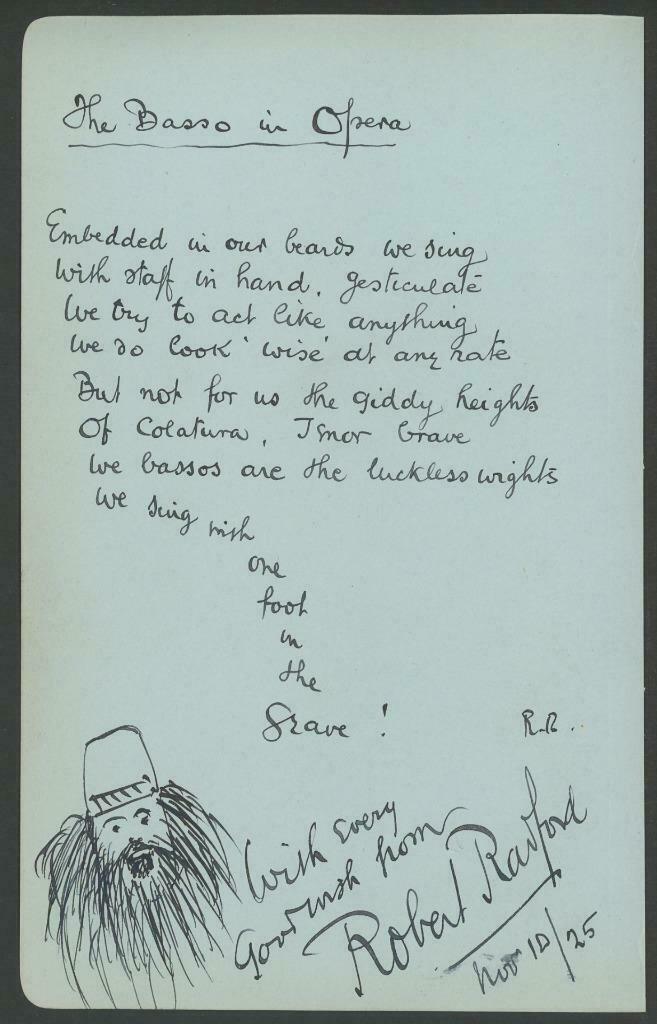 The Basso in Opera
Embedded in our beards we sing
With staff in hand, gesticulate
We try to act like anything
We do look 'wise' at any rate
But not for us the giddy heights
Of Colatura, Tenor brave
We bassos are the luckless wights
We sing with
one
foot
in
the
Grave !
R.R.
With every
Good wish from
Robert Radford
Nov 10/25